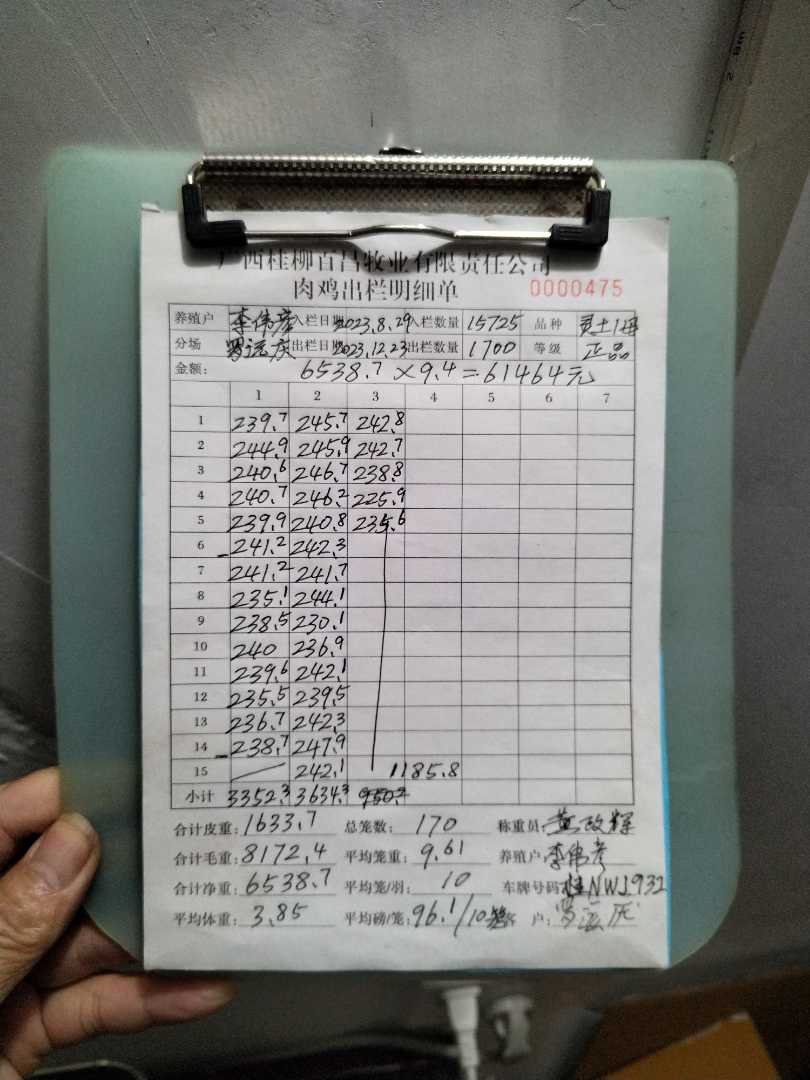 广西桂柳百昌牧业有限责任公司
肉鸡出栏明细单 0000475
养殖户 李伟彦 入栏日期 2023.8.29 入栏数量 15725 品种 灵土1母
分场 罗运庆 出栏日期 2023.12.23 出栏数量 1700 等级 正品
金额: 6538.7×9.4=61464元
1 2 3 4 5 6 7
1 239.7 245.7 242.8
2 244.9 245.9 242.7
3 240.6 246.7 238.8
4 240.7 246.2 225.9
5 239.9 240.8 235.6
6 241.2 242.3
7 241.2 241.7
8 235.1 244.1
9 238.5 230.1
10 240 236.9
11 239.6 242.1
12 235.5 239.5
13 236.7 242.3
14 238.7 247.9
15 242.1 1185.8
小计 3352.3 3634.3 950.2
合计皮重: 1633.7 总笼数: 170 称重员: 黄政辉
合计毛重: 8172.4 平均笼重: 9.61 养殖户 李伟彦
合计净重: 6538.7 平均笼/羽: 10 车牌号码 桂NW1932
平均体重: 3.85 平均磅/笼: 96.1/10 客户: 罗运庆